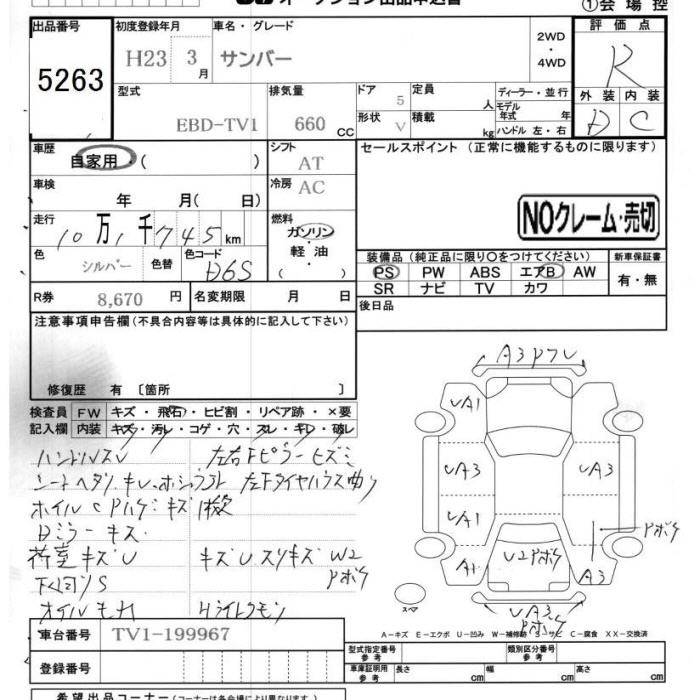 オークション出品申込書
①会場控
出品番号 初度登録年月 車名・グレード 評価点
5263 H23 3月 サンバー 2WD・4WD R
型式 排気量 ドア 定員 ディーラー・並行 外装 内装
EBD-TV1 660 CC 5 人 モデル年式 年 D C
形状 積載
V kg ハンドル 左・右
車歴 シフト セールスポイント (正常に機能するものに限ります)
自家用・( ) AT
車検 冷房
年 月( 日) AC
NOクレーム・売切
走行 燃料
10万1千745km ガソリン・軽油・( )
色 色替 色コード 装備品 (純正品に限り○をつけてください) 新車保証書
シルバー D6S PS PW ABS エアB AW 有・無
SR ナビ TV カワ
R券 8,670円 名変期限 月 日 後日品
注意事項申告欄(不具合内容等は具体的に記入して下さい)
修復歴 有 [箇所 ]
検査員記入欄 FW キズ・飛石・ヒビ割・リペア跡・×要
内装 キズ・汚レ・コゲ・穴・スレ・キレ・破レ
ハンドルスレ 左右Fピラーヒズミ
ホイルCPハゲキズ
Dミラーキズ
荷室キズU キズU スリキズ W2
下回りS Pボケ
オイルモレ
A3 Pアレ
UA1
UA3 UA3
UA1
U2Pボケ Pボケ
A1 A3
スペア
UA3
Pボケ
A-キズ E-エクボ U-凹み W-補修跡 S-サビ C-腐食 XX-交換済
車台番号 TV1-199967
型式指定番号 参考 類別区分番号 参考
登録番号 車庫証明用 参考 長さ cm 幅 cm 高さ cm
希望出品コーナー